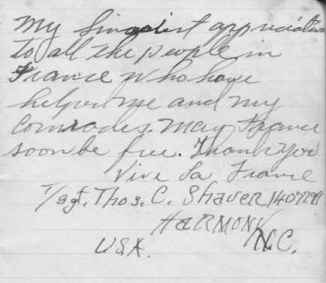 My Singalist appreciation
to all the people in
France who have
helpen me and my
comrodes. May France
soon be free. Thank You
Vive La France
T/Sgt. Thos. C. Shaver
HARMONY N.C.
USA.